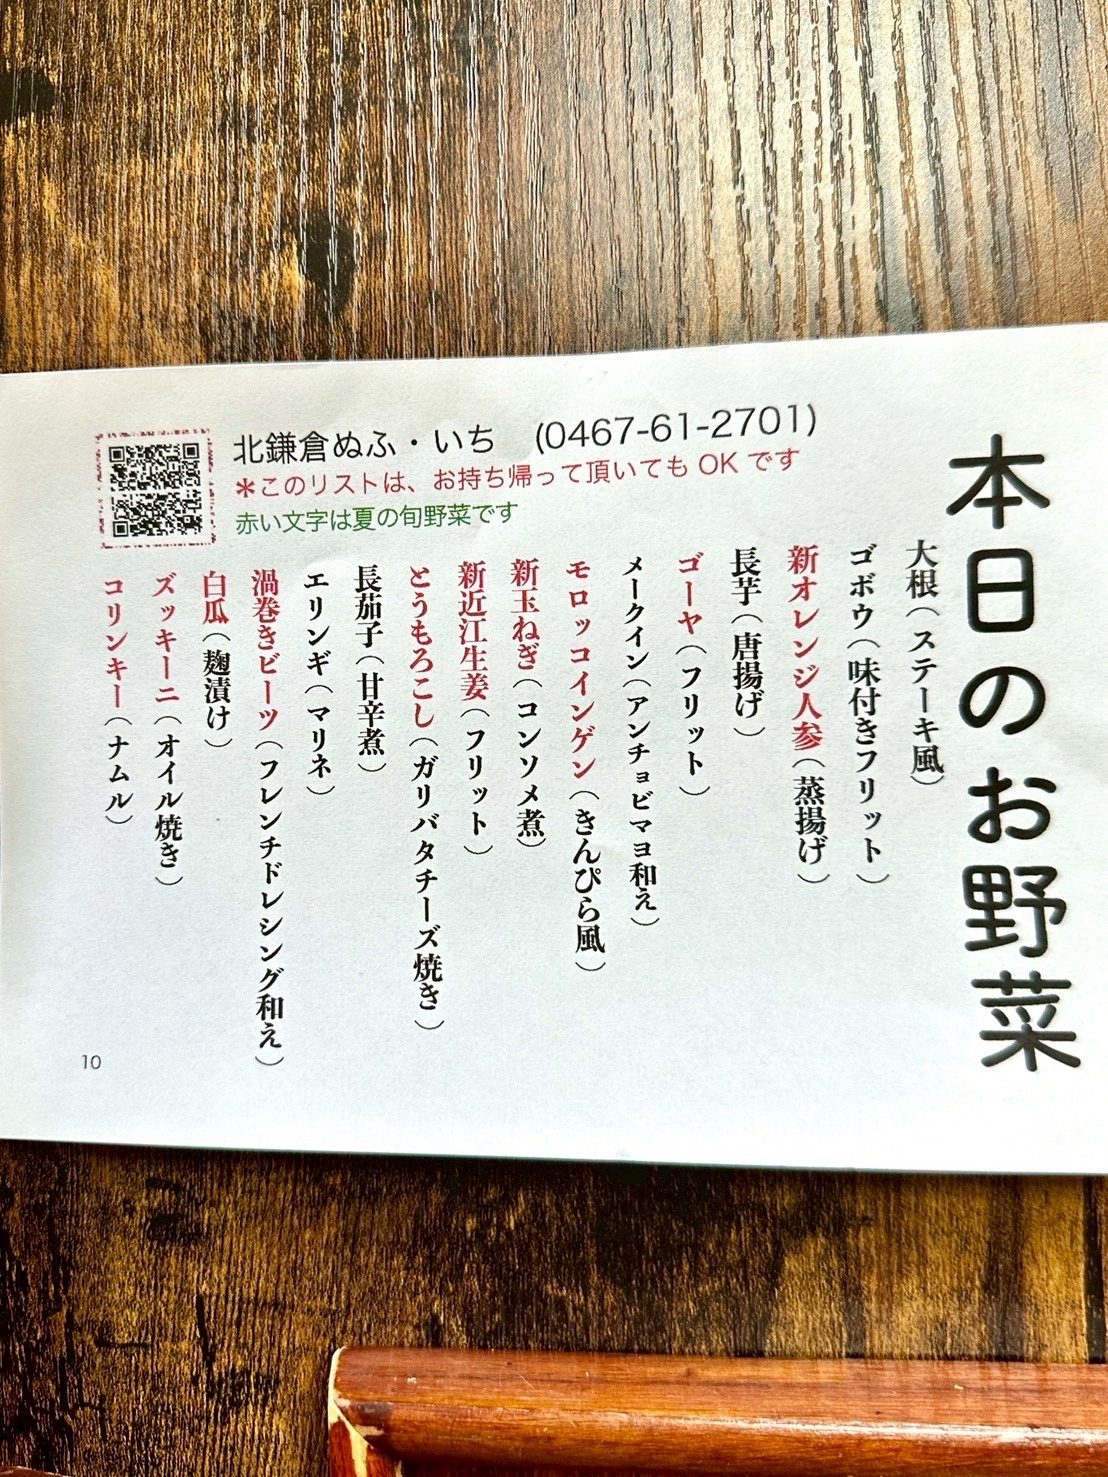 本日のお野菜
大根（ステーキ風）
ゴボウ（味付きフリット）
新オレンジ人参（蒸揚げ）
長芋（唐揚げ）
ゴーヤ（フリット）
メークイン（アンチョビマヨ和え）
モロッコインゲン（きんぴら風）
新玉ねぎ（コンソメ煮）
新近江生姜（フリット）
とうもろこし（ガリバタチーズ焼き）
長茄子（甘辛煮）
エリンギ（マリネ）
渦巻きビーツ（フレンチドレシング和え）
白瓜（麹漬け）
ズッキーニ（オイル焼き）
コリンキー（ナムル）
北鎌倉ぬふ・いち　(0467-61-2701)
＊このリストは、お持ち帰って頂いてもOKです
赤い文字は夏の旬野菜です
10